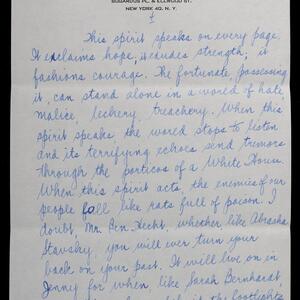 BOGARDUS PL. & ELLWOOD ST.
NEW YORK 40, N. Y.
This spirit speaks on every page.
It exclaims hope, it exudes strength, it
fashions courage. The fortunate, possessing
it, can stand alone in a world of hate,
malice, lechery, treachery. When this
spirit speaks, the world stops to listen
and its terrifying echoes send tremors
through the porticos of a White House.
When this spirit acts, the enemies of our
people fall like rats full of poison. I
doubt, Mr. Ben Hecht, whether like Abrasha
Stavsky you will ever turn your
back on your past. It will live on in
Jenny for when, like Sarah Bernhardt
the footlights